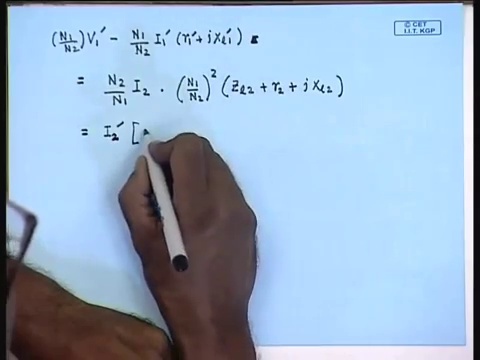 © CET
I.I.T. KGP
(N₁/N₂)V₁′ − N₁/N₂ I₁′ (r₁′ + jxl₁′)
= N₂/N₁ I₂ · (N₁/N₂)² (Zl₂ + r₂ + j Xl₂)
= I₂′ [